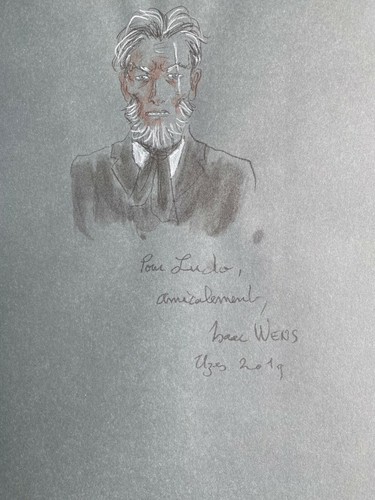 Pour Ludo,
amicalement,
Isaac WENS
Uzès 2019